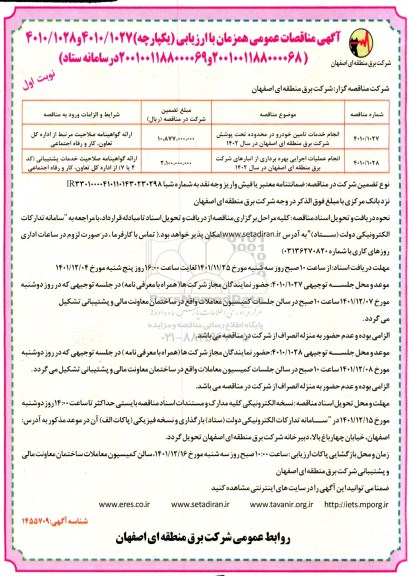 آگهی مناقصات عمومی همزمان با ارزیابی (یکپارچه) ۴۰۱۰/۱۰۲۷ و ۴۰۱۰/۱۰۲۸
(۲۰۰۱۰۰۱۱۸۸۰۰۰۰۶۸ و ۲۰۰۱۰۰۱۱۸۸۰۰۰۰۶۹ در سامانه ستاد)
شرکت برق منطقه ای اصفهان
نوبت اول
شرکت مناقصه گزار: شرکت برق منطقه ای اصفهان
شماره مناقصه موضوع مناقصه مبلغ تضمین شرکت در مناقصه (ریال) شرایط و الزامات ورود به مناقصه
۴۰۱۰/۱۰۲۷ انجام خدمات تامین خودرو در محدوده تحت پوشش شرکت برق منطقه ای اصفهان در سال ۱۴۰۲ ۱۰.۸۷۷.۰۰۰.۰۰۰ ارائه گواهینامه صلاحیت مرتبط از اداره کل تعاون، کار و رفاه اجتماعی
۴۰۱۰/۱۰۲۸ انجام عملیات اجرایی بهره برداری از انبارهای شرکت برق منطقه ای اصفهان در سال ۱۴۰۲ ۲.۱۰۰.۰۰۰.۰۰۰ ارائه گواهینامه صلاحیت خدمات پشتیبانی (کد ۴ یا ۷) از اداره کل تعاون، کار و رفاه اجتماعی
نوع تضمین شرکت در مناقصه: ضمانتنامه معتبر یا فیش واریز وجه نقد به شماره شبا IR۳۳۰۱۰۰۰۰۴۱۰۱۱۰۱۴۳۰۲۳۰۲۹۸
نزد بانک مرکزی با مبلغ فوق الذکر در وجه شرکت برق منطقه ای اصفهان
نحوه دریافت و تحویل اسناد مناقصه: کلیه مراحل برگزاری مناقصه از دریافت و تحویل اسناد تا مبادله قرارداد، با مراجعه به "سامانه تدارکات
الکترونیکی دولت (ستاد)" به آدرس www.setadiran.ir امکان پذیر خواهد بود. (تماس با کارفرما، در صورت لزوم در ساعات اداری
روزهای کاری با شماره ۰۳۱۳۶۲۷۰۸۲۰)
مهلت دریافت اسناد: از ساعت ۱۰ صبح روز سه شنبه مورخ ۱۴۰۱/۱۱/۲۵ لغایت ساعت ۱۶:۰۰ روز پنج شنبه مورخ ۱۴۰۱/۱۲/۰۴
موعد و محل جلسه توجیهی ۴۰۱۰/۱۰۲۷: حضور نمایندگان مجاز شرکت ها (همراه با معرفی نامه) در جلسه توجیهی که در روز دوشنبه
مورخ ۱۴۰۱/۱۲/۰۷ ساعت ۱۰ صبح در سالن جلسات کمیسیون معاملات واقع در ساختمان معاونت مالی و پشتیبانی تشکیل
می گردد.
الزامی بوده و عدم حضور به منزله انصراف از شرکت در مناقصه می باشد.
موعد و محل جلسه توجیهی ۴۰۱۰/۱۰۲۸: حضور نمایندگان مجاز شرکت ها (همراه با معرفی نامه) در جلسه توجیهی که در روز دوشنبه
مورخ ۱۴۰۱/۱۲/۰۸ ساعت ۱۰ صبح در سالن جلسات کمیسیون معاملات واقع در ساختمان معاونت مالی و پشتیبانی تشکیل می گردد.
الزامی بوده و عدم حضور به منزله انصراف از شرکت در مناقصه می باشد.
مهلت و محل تحویل اسناد مناقصه: نسخه الکترونیکی کلیه مدارک و مستندات اسناد مناقصه بایستی حداکثر تا ساعت ۱۴:۰۰ روز دوشنبه
مورخ ۱۴۰۱/۱۲/۱۵ در "سامانه تدارکات الکترونیکی دولت (ستاد) بارگذاری و نسخه فیزیکی (پاکات الف) آن در موعد مذکور به آدرس:
اصفهان، خیابان چهارباغ بالا، دبیرخانه شرکت برق منطقه ای اصفهان تحویل گردد.
زمان و محل بازگشایی پاکات ارزیابی: ساعت ۱۰:۰۰ صبح روز سه شنبه مورخ ۱۴۰۱/۱۲/۱۶، سالن کمیسیون معاملات ساختمان معاونت مالی
و پشتیبانی شرکت برق منطقه ای اصفهان
ضمنا می توانید این آگهی را در سایت های اینترنتی مشاهده کنید
http://iets.mporg.ir www.tavanir.org.ir www.setadiran.ir www.eres.co.ir
شناسه آگهی: ۱۴۵۵۷۰۹
روابط عمومی شرکت برق منطقه ای اصفهان